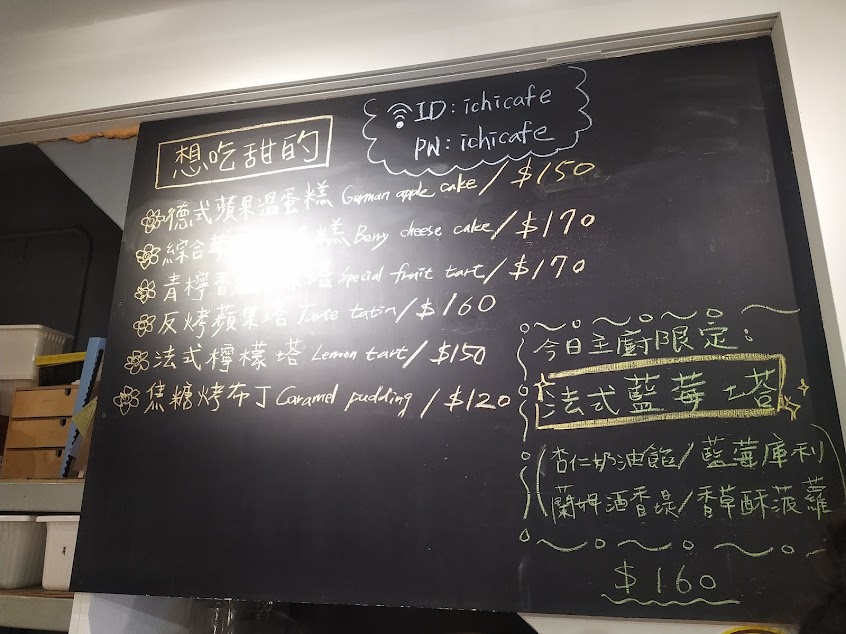 ID: ichicafe
PW: ichicafe
想吃甜的
德式蘋果溫蛋糕 German apple cake / $150
綜合 糕 Berry cheese cake / $170
青檸香 塔 Special fruit tart / $170
反烤蘋果塔 Tarte tatin / $160
法式檸檬塔 Lemon tart / $150
焦糖烤布丁 Caramel pudding / $120
今日主廚限定:
法式藍莓塔
(杏仁奶油餡/藍莓庫利
蘭姆酒香堤/香草酥菠蘿)
$160